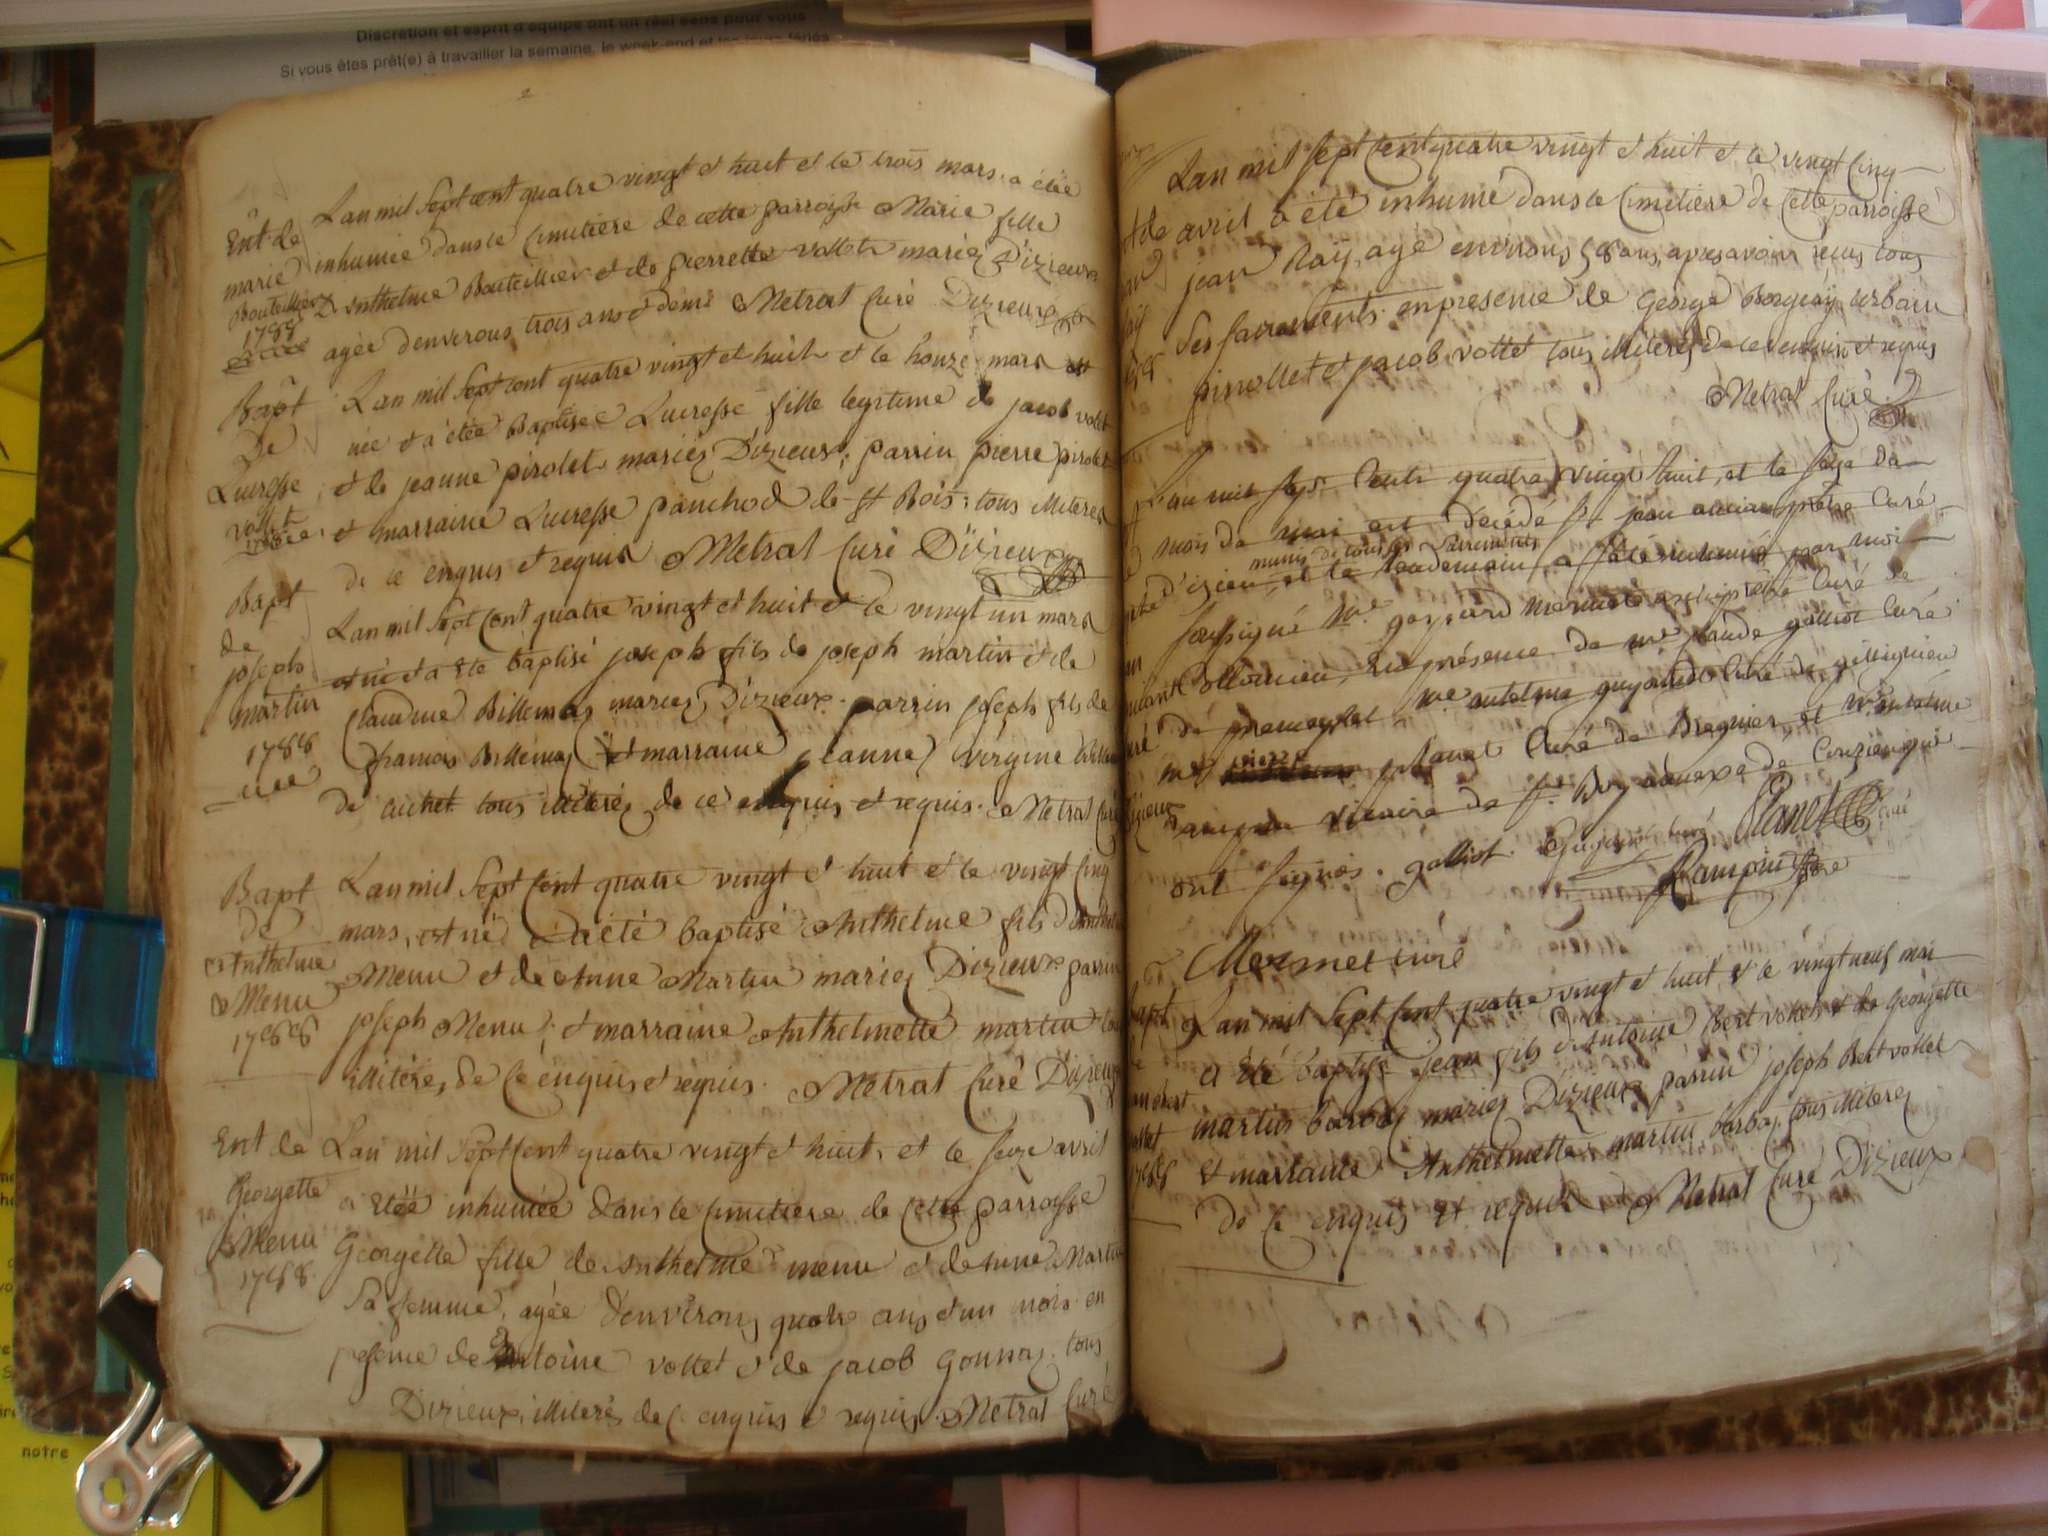 Discretion et esprit d'équipe ont un réel sens pour vous
Si vous êtes prêt(e) à travailler la semaine, le week-end et les jours fériés
2
Ent de
marie
Bouteillier
1788
Lan mil Sept cent quatre vingt et huit et le trois mars a étée
inhumée dans le cimetière de cette parroisse Marie fille
Anthelme Bouteillier et de pierrette vollet mariés Dizieux
agée denverons trois ans et demi Metrat Curé Dizieux
Bapt
De
Lucresse
vollet
Lan mil Sept cent quatre vingt et huit et le honze mars est
née et a étée Baptisée Lucresse fille legitime de jacob volet
et de jeanne pirolet mariés Dizieux; parrin pierre pirolet
et marraine Lucresse panchod de st Bois; tous illiterés
de ce enquis et requis Metrat Curé Dizieux
Bapt
de
joseph
martin
1788
Lan mil Sept cent quatre vingt et huit et le vingt un mars
est né et a été baptisé joseph fils de joseph martin et de
Claudine Billemas mariés Dizieux. parrin joseph fils de
francois Billemas et marraine jeanne vérgine
de cuchet tous illiterés de ce enquis et requis. Metrat Curé
Bapt
de
Anthelme
Menu
1788
Lan mil Sept Cent quatre vingt et huit et le vingt Cinq
mars, est né et a été baptisé Anthelme fils
Menu et de Anne Martin mariés Dizieux parrin
joseph Menu; et marraine Anthelmette martin
illitérés, de Ce enquis et requis. Metrat Curé Dizieux
Ent de
Georgette
Menu
1788
Lan mil Sept Cent quatre vingt et huit, et le seize avril
a étéé inhumée dans le Cimetiere de Cette parroisse
Georgette fille de Anthelme menu et de Anne Martin
sa femme, agée d'environs quatre ans et un mois en
presence de Antoine vollet et de jacob Gonnas. tous
Dizieux, illiterés de Ce enquis et requis. Metrat Curé
Lan mil Sept Cent quatre vingt et huit et le vingt Cinq
avril a été inhumé dans le Cimetière de Cette parroisse
jean Raÿ, agé environs 58 ans, apres avoir reçus tous
Ses sacrements. en presence de George Borgeaÿ, urbain
pirollet et jacob vollet tous illiterés de ce enquis et requis
Metrat Curé
L'an mil sept Cents quatre vingt huit, et le seze du
mois de mai est décédé jean prêtre Curé
munis de tous sacrements
d'izieu, et le lendemain a été inhumé par moi
soussigné Mre gaspard Mermet prêtre Curé de
Collomieu, en présence de Mre claude galliot Curé
de premeyzel Mre antelme Curé de
pierre planet Curé de Bregnier, et
vicaire de st annexe de Conzieu qui
ont signés. galliot. curé Planet Curé
Rampin
Mermet curé
1788
Lan mil Sept Cent quatre vingt et huit, et le vingt neuf mai
a été baptisé jean fils de Antoine Bert vollet et de Georgette
martin barbas mariés Dizieux parrin joseph Bert vollet
et marraine Anthelmette martin barbas, tous illiterés
de Ce enquis et requis Metrat Curé Dizieux
notre